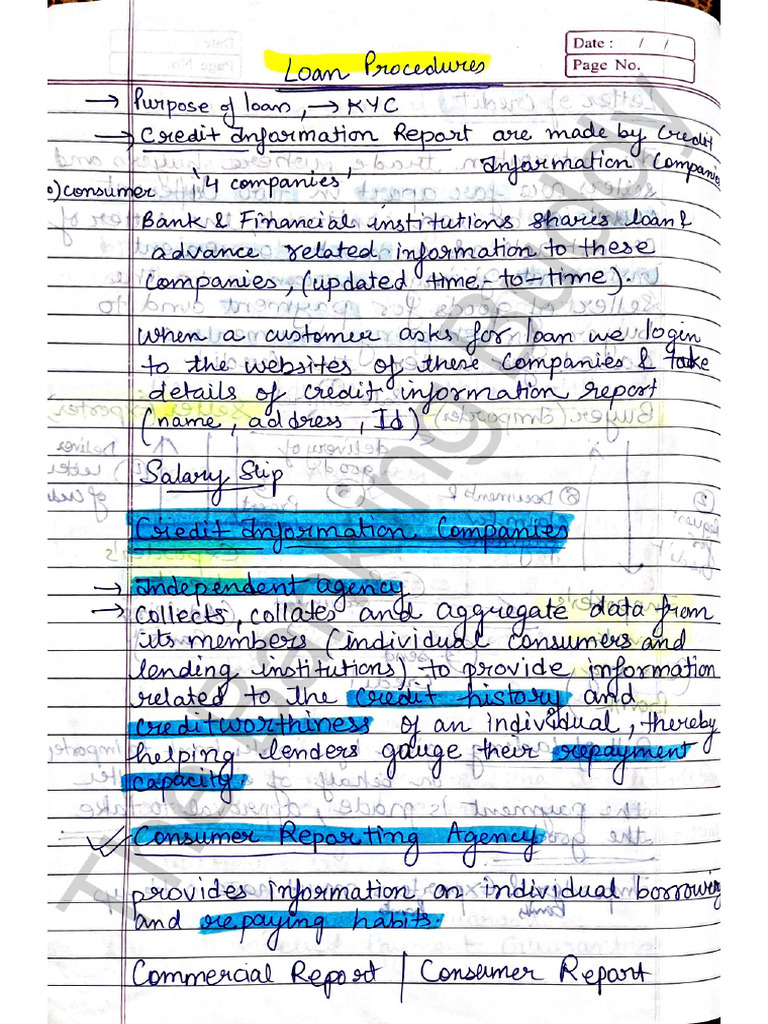 Date : / /
Page No.
Loan Procedures
→ Purpose of loan, → KYC
→ Credit Information Report are made by Credit
Information Companies
consumer '4 companies'
Bank & Financial institutions shares loan &
advance related information to these
companies, (updated time-to-time).
when a customer asks for loan we login
to the websites of these companies & take
details of credit information report
(name, address, Id)
Salary Slip
Credit Information Companies
→ Independent agency
→ collects, collates and aggregate data from
its members (individual consumers and
lending institutions) to provide information
related to the credit history and
creditworthiness of an individual, thereby
helping lenders gauge their repayment
capacity.
Consumer Reporting Agency
provides information on individual borrowing
and repaying habits.
Commercial Report | Consumer Report
The Banking Buddy